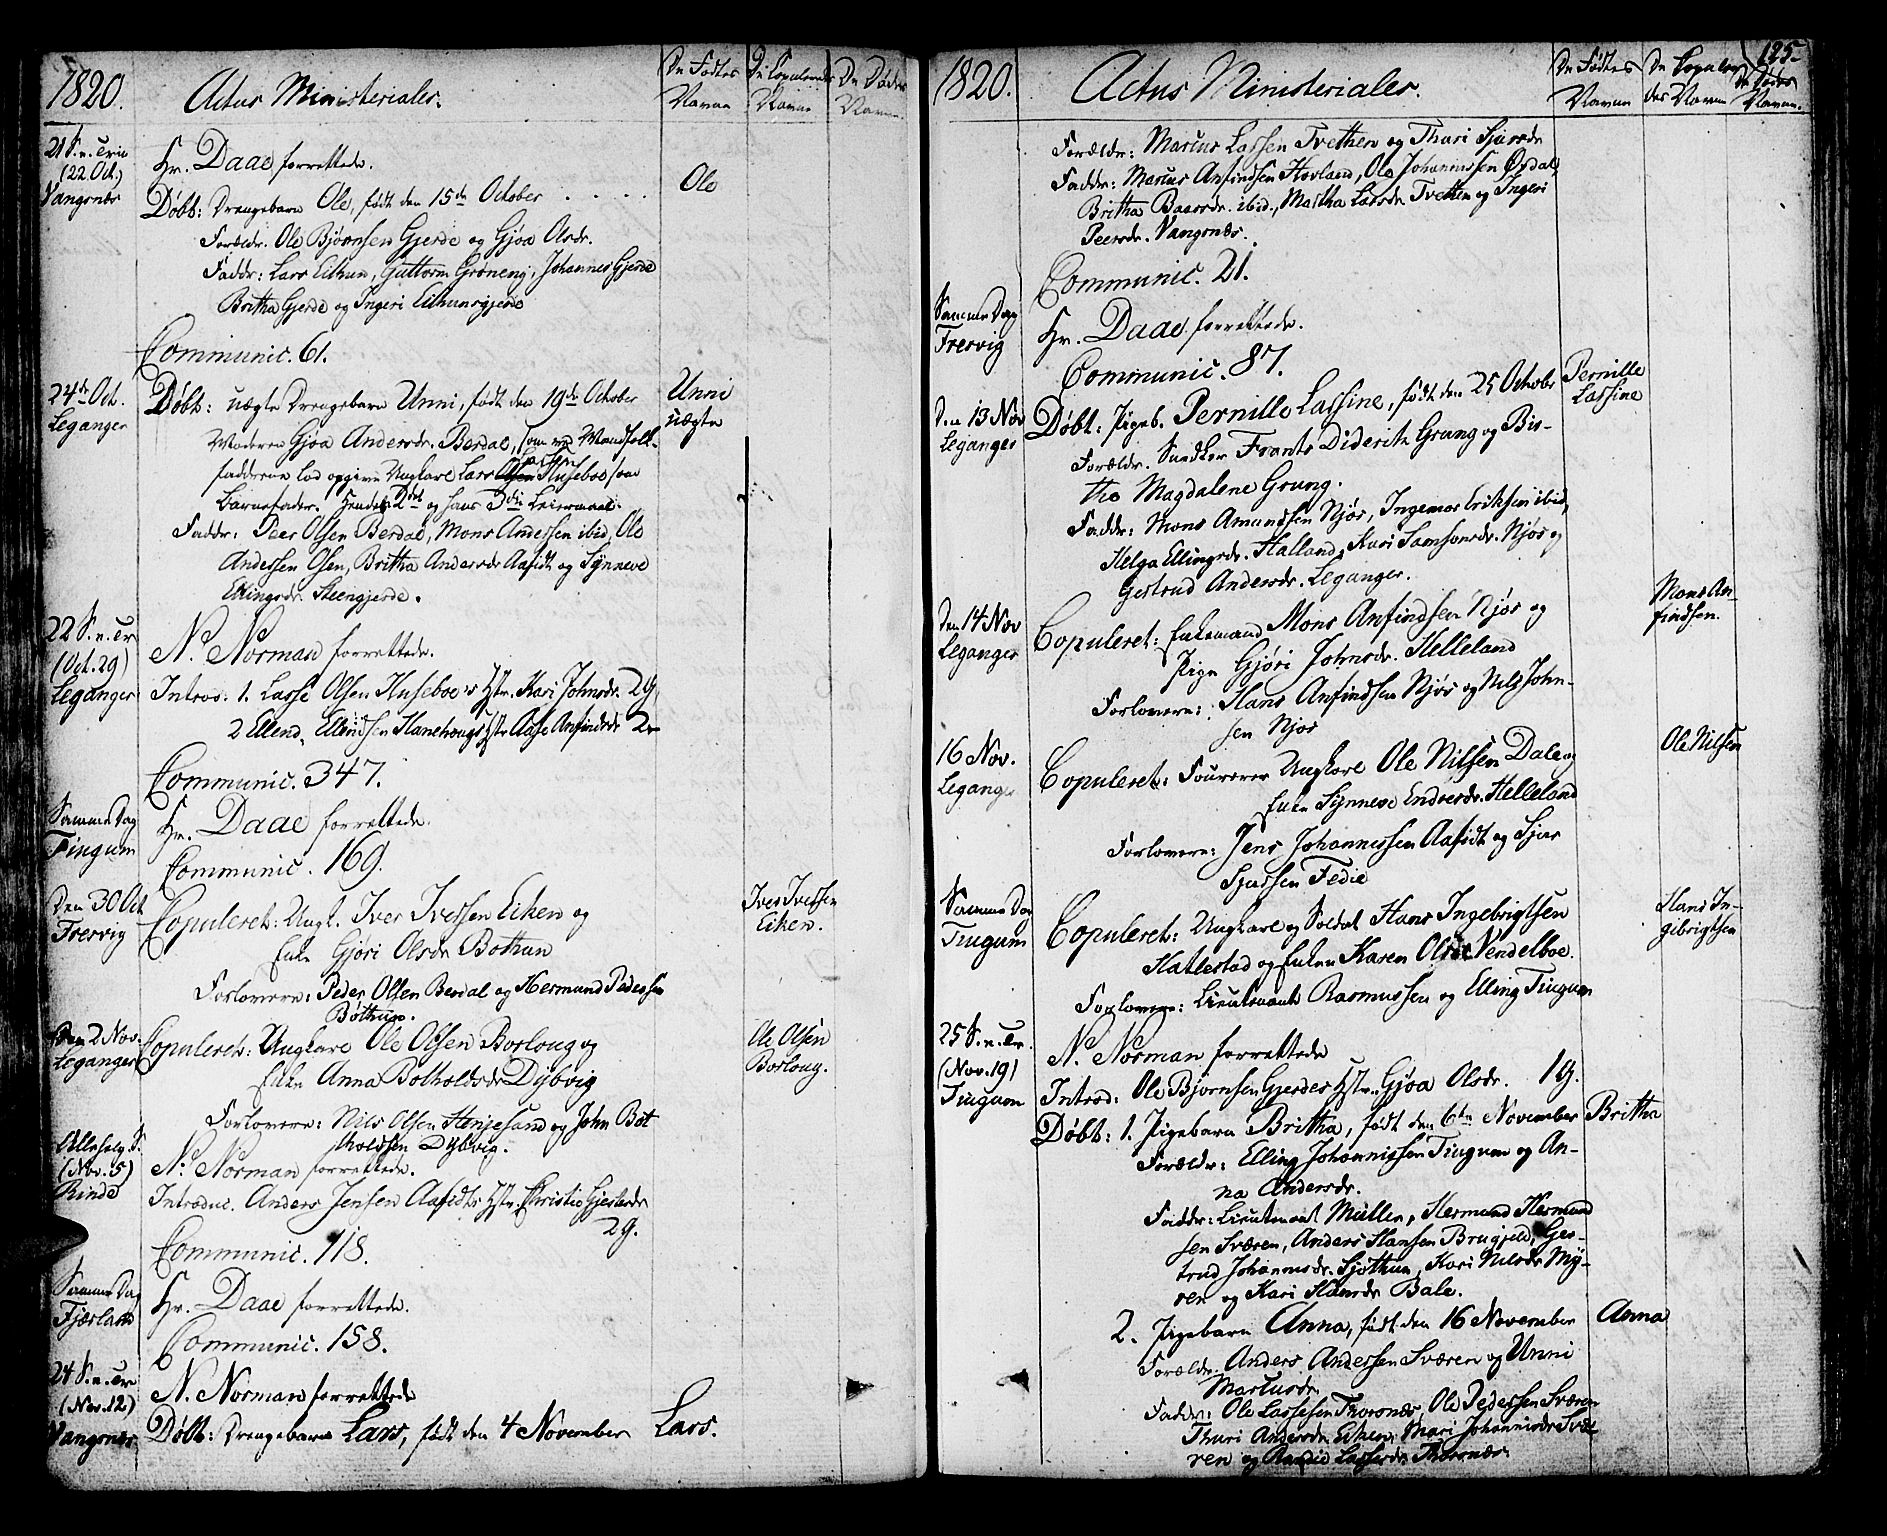 1820.
Actus Ministeriales.
De Fødtes Navne
De Copuleredes Navne
De Dødes Navne
21 S. n. Trin
(22 Oct.)
Vangsnæs
Hr. Daae forrettede.
Døbt: Drengebarn Ole, født den 15de October . . . .
Ole
Forældr. Ole Bjørnsen Gjerde og Gjøa Olsdr.
Faddr: Lars Eithun, Guttorm Grøneng, Johannes Gjerde
Britha Gjerde og Ingeri Eithunsgjerde
Communic. 61.
24de Oct.
Leganger
Døbt: uægte Drengebarn Unni, født den 19de October
Unni
uægte
Moderen Gjøa Andersdr. Berdal, som ved Mandfolk-
fadderne lod opgive Ungkarl Lars Olsen Huseboe som
Barnefader. Hendes 2det og hans 3die Leiermaal.
Faddr: Peer Olsen Berdal, Mons Andersen ibid, Ole
Andersen Osen, Britha Andersdr Aafedt og Synneve
Ellingsdr. Steengjerde.
22 S. n. Tr
(Oct. 29)
Leganger
N. Norman forrettede.
Introd: 1. Lasse Olsen Huseboe's Hstr. Kari Johnsdr. 29,
2 Ellend Ellendsen Hanehougs Hstr Aase Anfindsdr 2
Communic. 347.
Samme Dag
Tiugum
Hr. Daae forrettede.
Communic. 169.
Den 30 Oct
Fresvig
Copuleret: Ungk. Iver Iversen Eiken og
Enke Gjøri Olsdr Bothun
Iver Iversen
Eiken.
Forlovere: Peder Olsen Berdal og Hermund Pedersen
Bøthun.
Den 2 Nov.
Leganger
Copuleret: Ungkarl Ole Olsen Borloug og
Enke Anna Botholdsdr Dybvig
Ole Olsen
Borloug.
Forlovere: Nils Olsen Henjesand og John Bot
holdsen Dybvig.
Allehelg. S.
(Nov. 5)
Rinde
N. Norman forrettede.
Introduc. Anders Jensen Aafedts Hstr. Christie Gjestsdr
29.
Communic. 118.
Samme Dag
Fjærland
Hr. Daae forrettede.
Communic. 158.
24 S. n. Tr
(Nov. 12)
Vangsnæs
N. Norman forrettede
Døbt: Drengebarn Lars, født den 4 November
Lars.
1820.
Actus Ministeriales.
De Fødtes Navne
De Copuleredes Navne
De Dødes Navne.
125.
Forældr: Marcus Lassen Tvethen og Thuri Sjursdr
Faddr: Marcus Anfindsen Hovland, Ole Johannessen Ovdal
Britha Baarsdr. ibid., Martha Larsdr Tvethen og Ingeri
Peersdr. Vangsnæs.
Communic. 21.
Samme Dag
Fresvig
Hr. Daae forrettede.
Communic. 87.
Den 13 Nov
Leganger
Døbt: Pigeb. Pernille Lassine, født den 25 Octobr
Pernille
Lassine
Forældr. Snedker Frants Diderik Grung og Bir-
the Magdalene Grung.
Faddr: Mons Amundsen Njøs, Ingemar Eriksen ibid,
Helga Ellingsdr. Halland, Kari Samsonsdr. Njøs og
Gertrud Andersdr. Leganger.
Den 14 Nov
Leganger
Copuleret: Enkemand Mons Anfindsen Njøs og
Pige Gjøri Johnsdr. Helleland
Mons An-
findsen.
Forlovere: Hans Anfindsen Njøs og Nils John-
sen Njøs
16 Nov.
Leganger
Copuleret: Fourerer Ungkarl Ole Nilsen Dale og
Enke Synneve Endresdr. Helleland
Ole Nilsen
Forlovere: Jens Johannessen Aafedt og Sjur
Sjursen Fedie
Samme Dag
Tiugum
Copuleret: Ungkarl og Soldat Hans Ingebrigtsen
Hatlestad og Enken Karen Olsdr Vendelboe.
Hans In-
gebrigtsen
Forlovere: Lieutenant Rasmussen og Elling Tiugum
25 S. n. Tr.
(Nov. 19)
Tiugum
N. Norman forrettede
Introd: Ole Bjørnsen Gjerdes Hstr. Gjøa Olsdr. 19.
Døbt: 1. Pigebarn Britha, født den 6te November
Britha
Forældr: Elling Johannessen Tiugum og An-
na Andersdr.
Faddr: Lieutenant Müller, Hermund Hermund
sen Sværen, Anders Hansen Brugjeld, Ger-
trud Johannesdr. Sjøthun, Kari Nilsdr My-
ren og Kari Hansdr Bale.
2. Pigebarn Anna, født den 16 November
Anna
Forældr. Anders Andersen Sværen og Unni
Marcusdr
Faddr: Ole Lassesen Thorsnæs, Ole Pedersen Sværen
Thuri Andersdr Eiken, Mari Johannesdr Svæ-
ren og Randie Lassesdr. Thorsnæs.